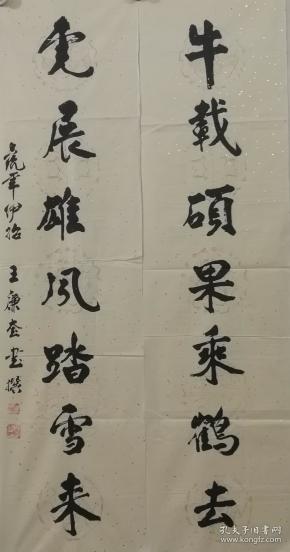 牛載碩果乘鶴去
虎展雄风踏雪来
虎年伊始 王廉奎書撰
孔夫子旧书网
www.kongfz.com